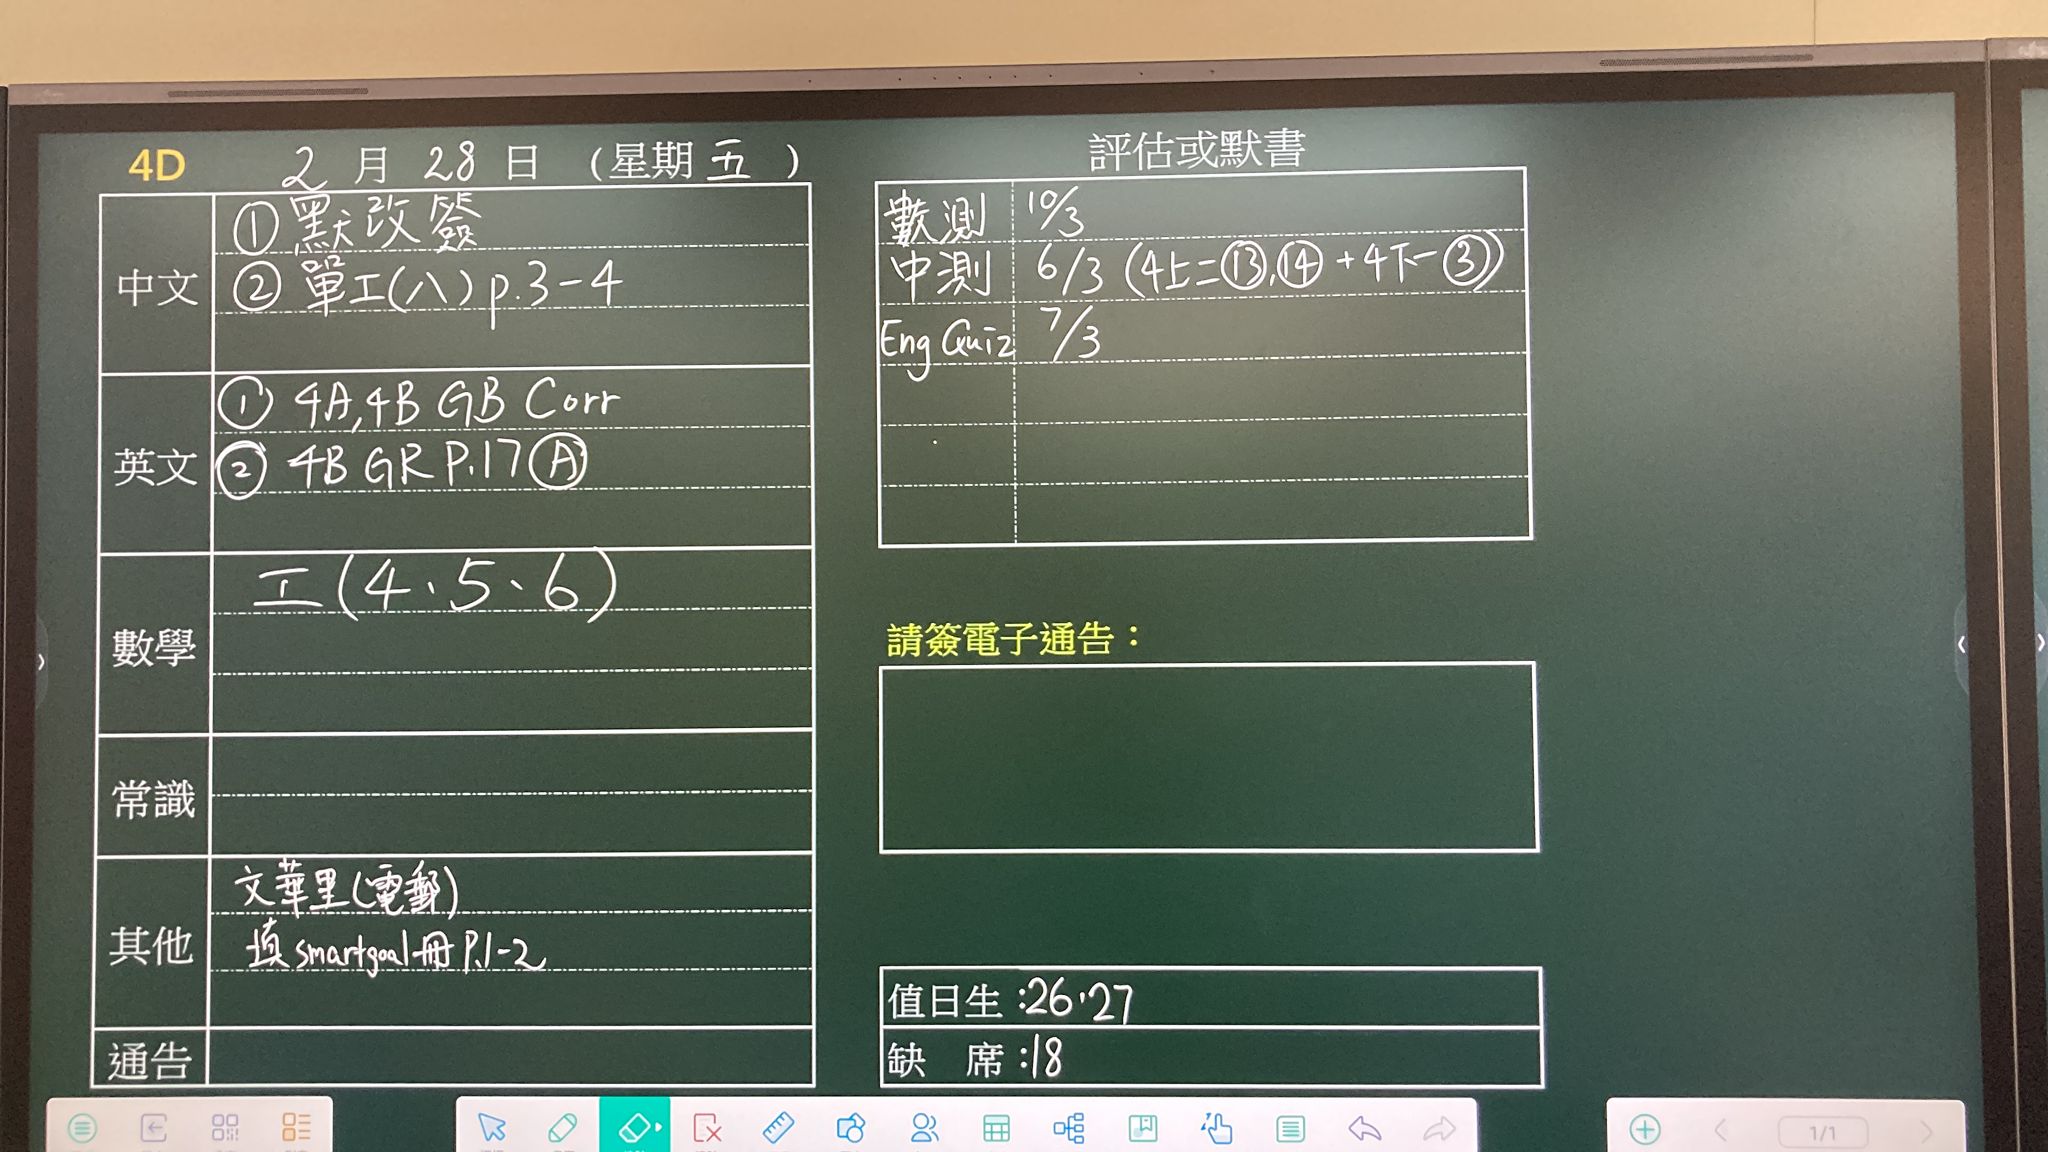 4D 2 月 28 日 (星期 五 )
中文
① 默改簽
② 單工(八) p.3-4
英文
① 4A,4B GB Corr
② 4B GR P.17 Ⓐ
數學
工(4、5、6)
常識
其他
文華里(電郵)
填 smartgoal冊 P.1-2
通告
評估或默書
數測 10/3
中測 6/3 (4上二⑬,⑭+4下一③)
Eng Quiz 7/3
請簽電子通告：
值日生 :26、27
缺 席 :18
1/1